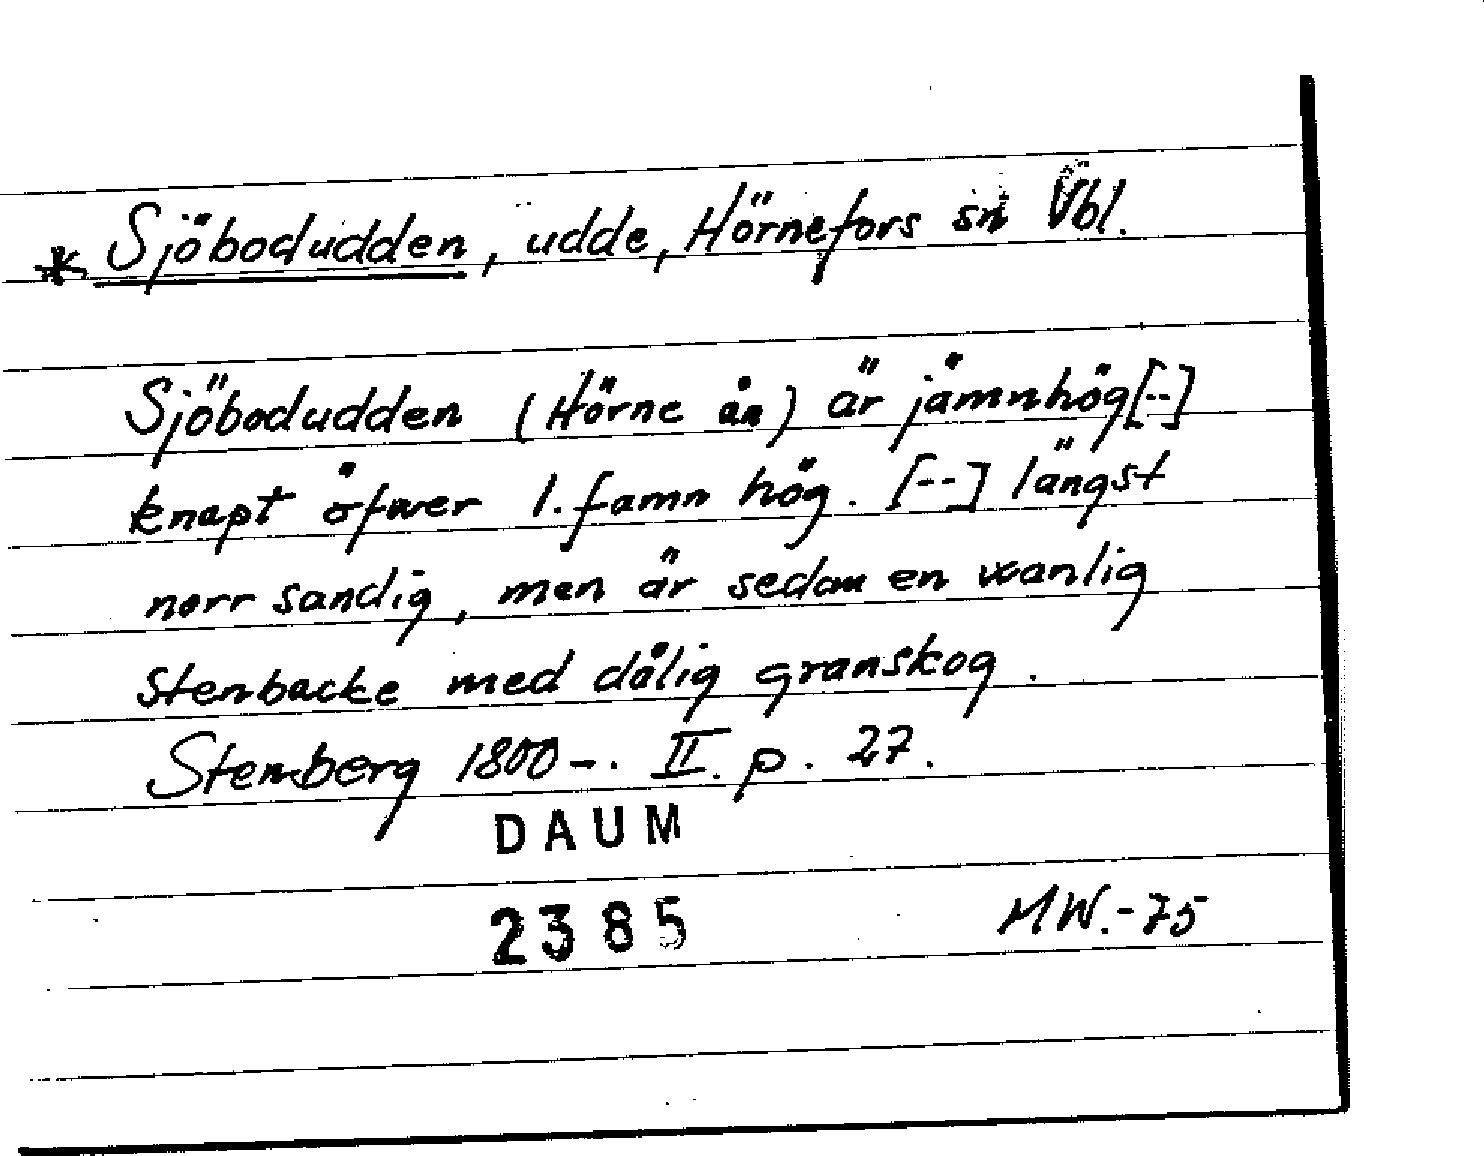 * Sjöbodudden, udde, Hörnefors sn Vbl.
Sjöbodudden (Hörne ån) är jämnhög [--]
knapt öfwer 1. famn hög. [--] längst
norr sandig, men är sedan en wanlig
stenbacke med dålig granskog.
Stenberg 1800-. II. p. 27.
DAUM
2385
MW.-75